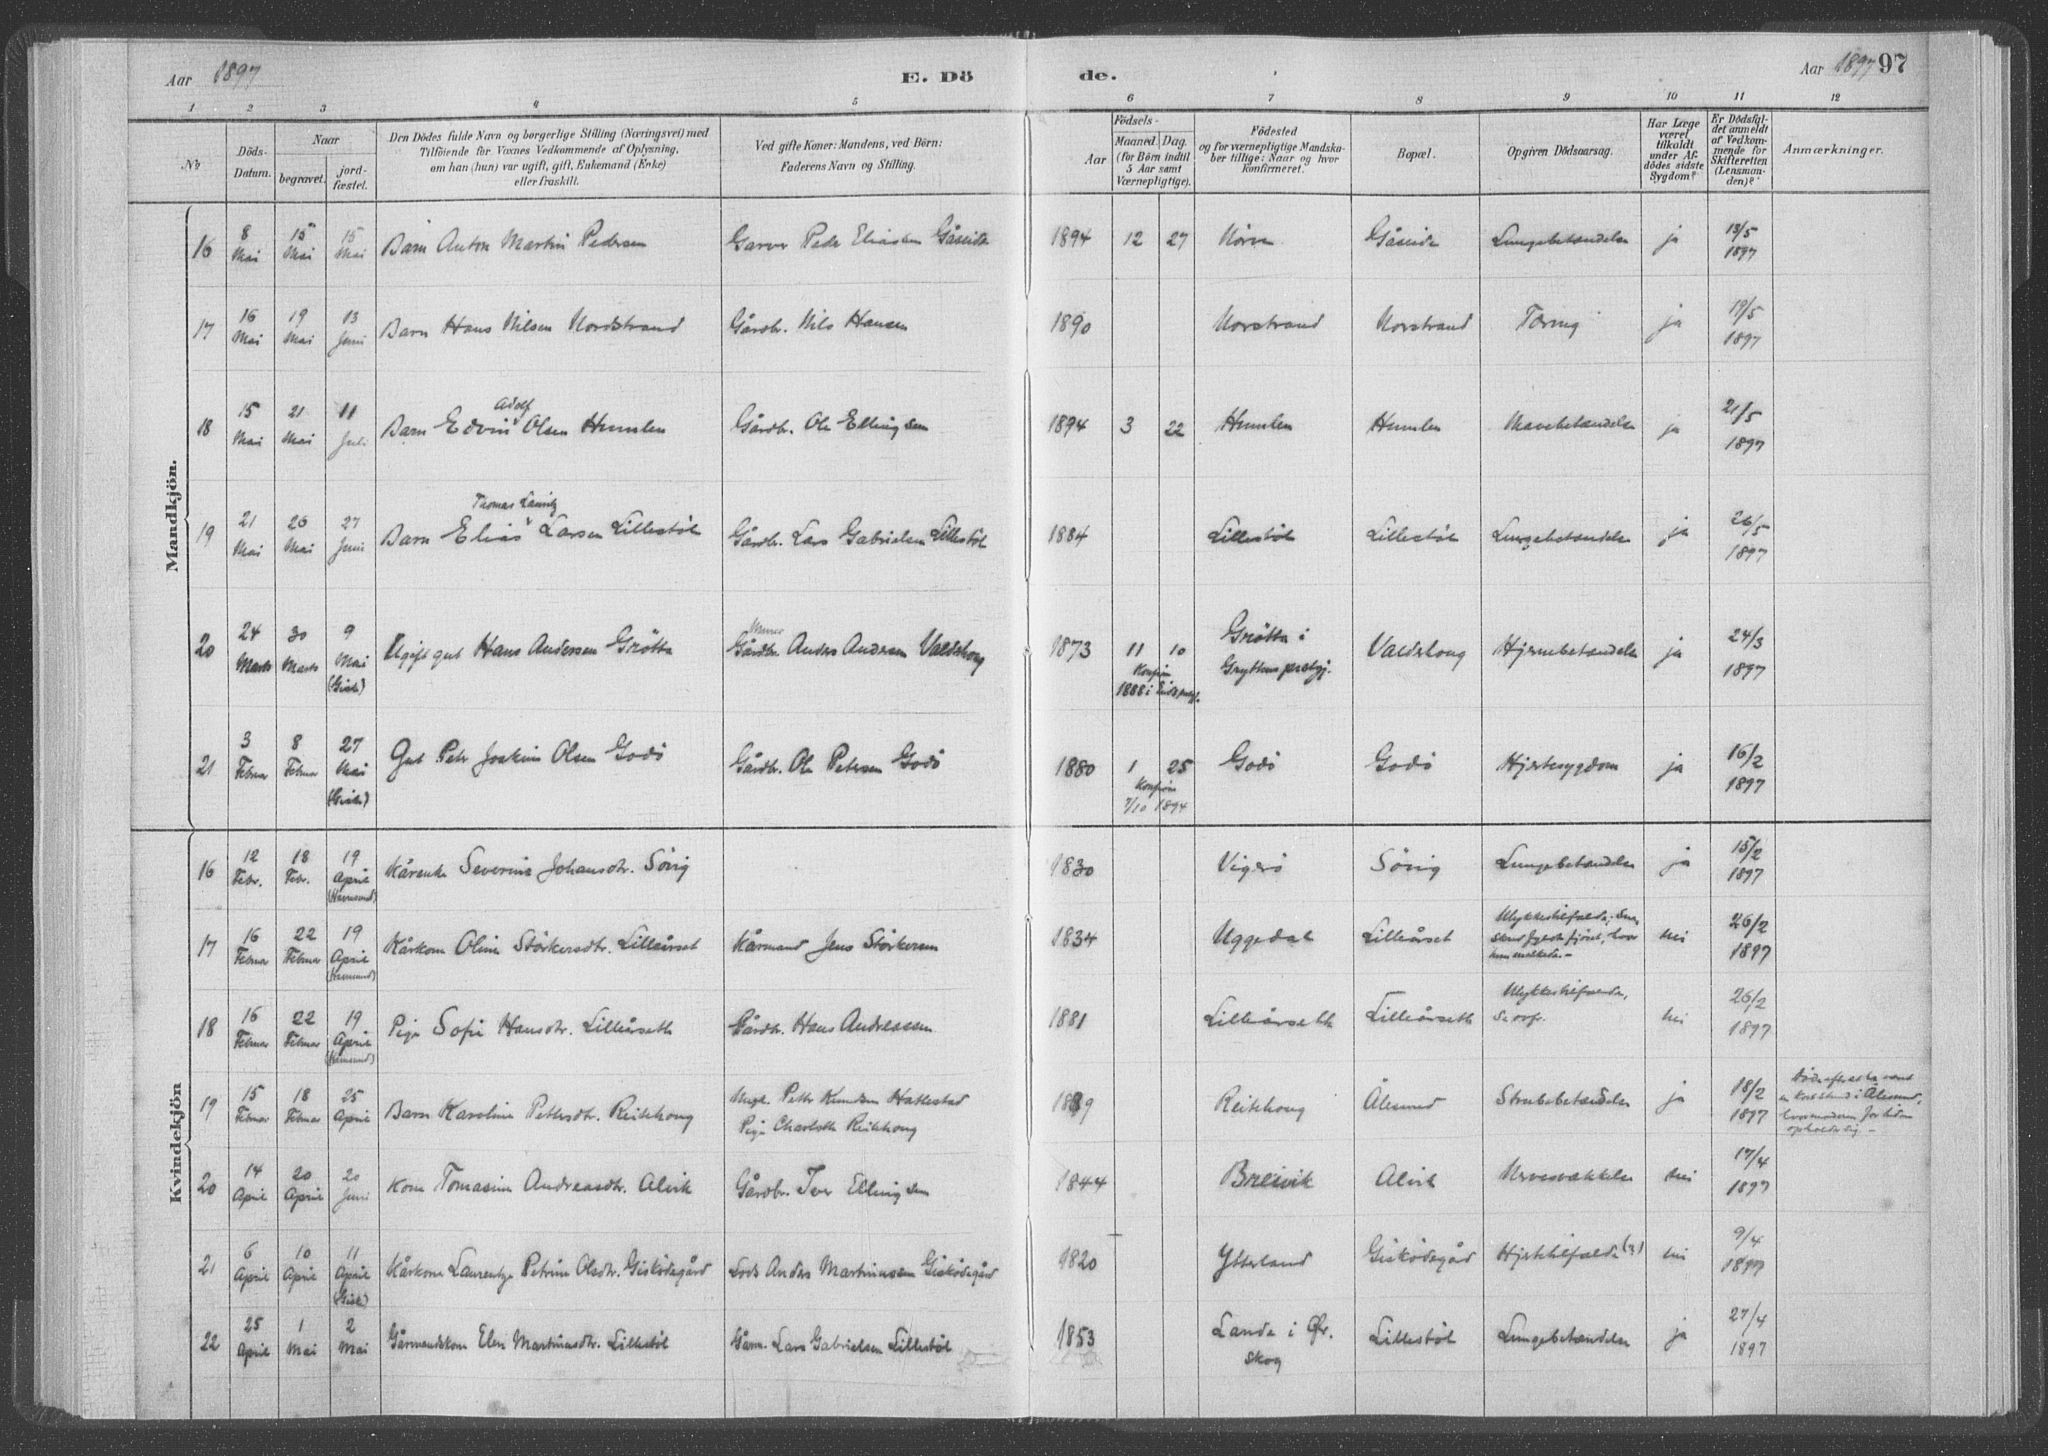 Aar 1897
E. Dö
de.
Aar 1897 97
1 2 3 4 5 6 7 8 9 10 11 12
No
Döds-
Datum.
Naar
begravet.
jord-
fæstet.
Den Dödes fulde Navn og borgerlige Stilling (Næringsvei) med
Tilföiende for Voxnes Vedkommende af Oplysning,
om han (hun) var ugift, gift, Enkemand (Enke)
eller fraskilt.
Ved gifte Koner: Mandens, ved Börn:
Faderens Navn og Stilling.
Aar
Födsels-
Maaned. Dag.
(for Börn indtil
5 Aar samt
Værnepligtige).
Födested
og for værnepligtige Mandska-
ber tillige: Naar og hvor
konfirmeret.
Bopæl.
Opgiven Dödsaarsag.
Har Læge
været
tilkaldt
under Af-
dödes sidste
Sygdom?
Er Dödsfal-
det anmeldt
af Vedkom-
mende for
Skifteretten
(Lensman-
den)?
Anmærkninger.
Mandkjön.
16 8 Mai 15 Mai 15 Mai Barn Anton Martin Pedersen Garver Peder Eliassen Gåseide 1894 12 27 Nörve Gåseide Lungebetændelse ja 13/5 1897
17 16 Mai 19 Mai 13 Juni Barn Hans Nilsen Nordstrand Gårdbr. Nils Hansen 1890 Norstrand Norstrand Tæring ja 19/5 1897
Adolf
18 15 Mai 21 Mai 11 Juli Barn Edvin Olsen Humlen Gårdbr. Ole Ellingsen 1894 3 22 Humlen Humlen Mavebetændelse ja 21/5 1897
Thomas Lauritz
19 21 Mai 26 Mai 27 Juni Barn Elias Larsen Lillestöl Gårdbr. Lars Gabrielsen Lillestöl 1884 Lillestöl Lillestöl Lungebetændelse ja 26/5 1897
20 24 Marts 30 Marts 9 Mai (Giske) Ugift gut Hans Andersen Gröttа Gårdbr. Anders Andersen Valdshoug 1873 11 10 Konfirm 1888 i Grötta i Gryttens prestgj. Valdshoug Hjernebetændelse ja 24/3 1897
21 3 Februar 8 Februar 27 Mai (Giske) Gut Peter Joakim Olsen Godö Gårdbr. Ole Petersen Godö 1880 1 25 Konfirm 7/10 1894 Godö Godö Hjertesygdom ja 16/2 1897
Kvindekjön
16 12 Febr. 18 Febr. 19 April (Hamnsund) Kårenke Severine Johansdtr. Sövig 1830 Vigerö Sövig Lungebetændelse ja 15/2 1897
17 16 Februar 22 Februar 19 April (Hamnsund) Kårkone Oline Störkersdtr. Lilleårset Kårmand Jens Störkersen 1834 Uggedal Lilleårset Ulykkestilfælde; Sne- nei 26/2 1897
18 16 Februar 22 Februar 19 April (Hamnsund) Pige Sofie Hansdtr. Lilleårseth Gårdbr. Hans Andreassen 1881 Lilleårseth Lilleårseth Ulykkestilfælde, Se ovf. nei 26/2 1897
19 15 Februar 18 Februar 25 April Barn Karoline Pettersdtr. Reitehoug Ungk. Petter Knudsen Hattestad Pige Charlotte Reitehoug 1889 Reitehoug Ålesund Strubebetændelse ja 18/2 1897
20 14 April 20 April 20 Juni Kone Tomasine Andreasdtr. Alvik Gårdbr. Iver Ellingsen 1844 Breivik Alvik Nervesvækkelse nei 17/4 1897
21 6 April 10 April 11 April (Giske) Kårkone Laurentze Petrine Olsdtr. Gisködegård Lods Anders Martinussen Gisködegård 1820 Ytterland Gisködegård Hjertetilfælde (?) nei 9/4 1897
22 25 April 1 Mai 2 Mai Gårmandskone Elen Martinusdtr. Lillestöl Gårm. Lars Gabrielsen Lillestöl 1853 Lande i Ør- skog Lillestöl Lungebetændelse ja 27/4 1897